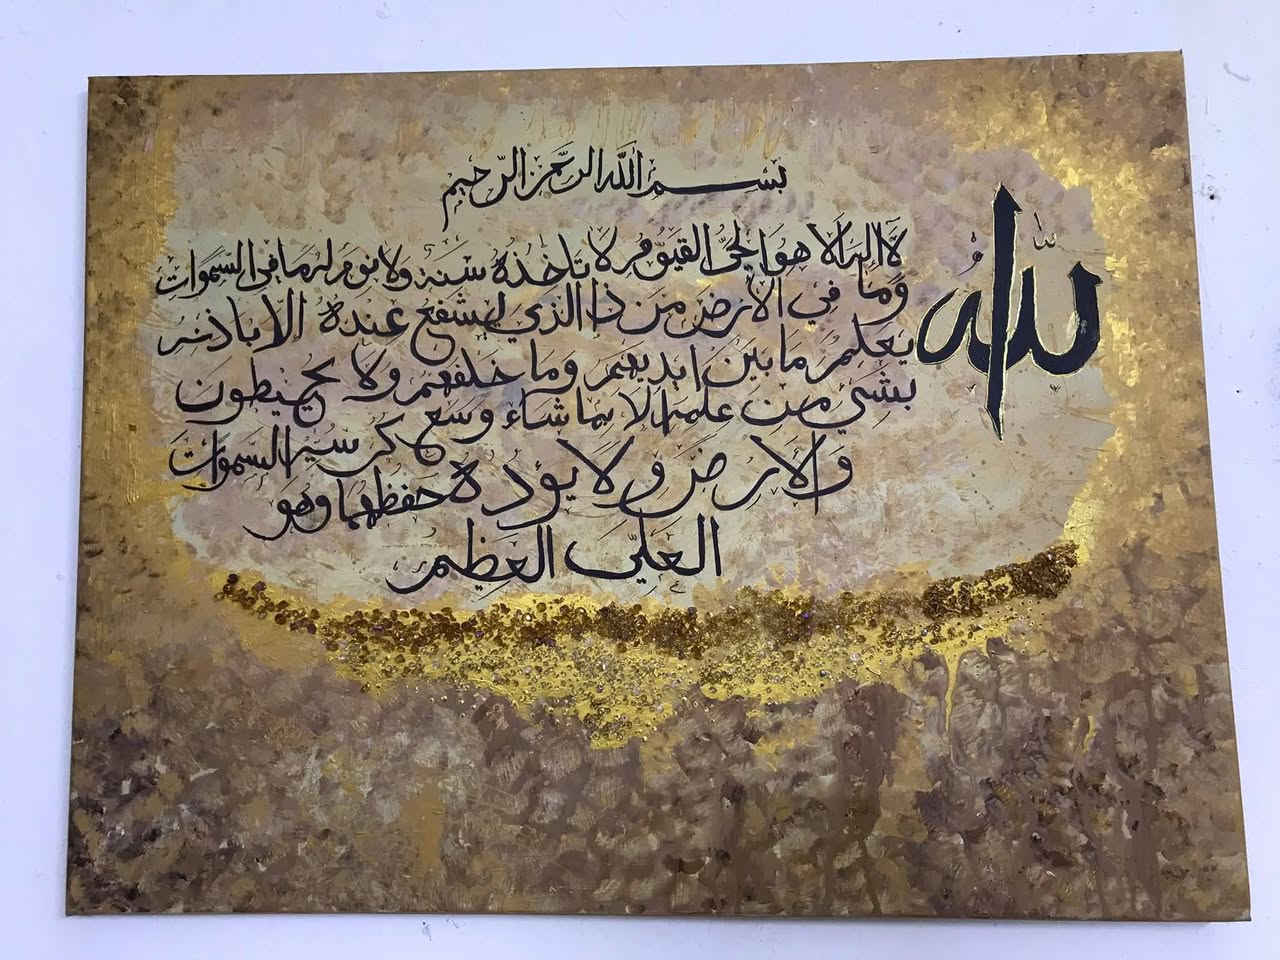 بسم الله الرحمن الرحيم
الله
لا اله الا هو الحي القيوم لا تاخذه سنة ولا نوم له ما في السموات
وما في الارض من ذا الذي يشفع عنده الا باذنه
يعلم ما بين ايديهم وما خلفهم ولا يحيطون
بشيء من علمه الا بما شاء وسع كرسيه السموات
والارض ولا يؤده حفظهما وهو
العلي العظيم